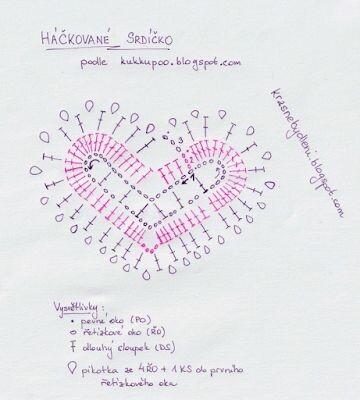 HÁČKOVANÉ SRDÍČKO
podle kukkupoo.blogspot.com
krasnebydleni.blogspot.com
1
2
3
Vysvětlivky:
• pevné oko (PO)
řetízkové oko (ŘO)
dlouhý sloupek (DS)
pikotka ze 4ŘO + 1KS do prvního
řetízkového oka